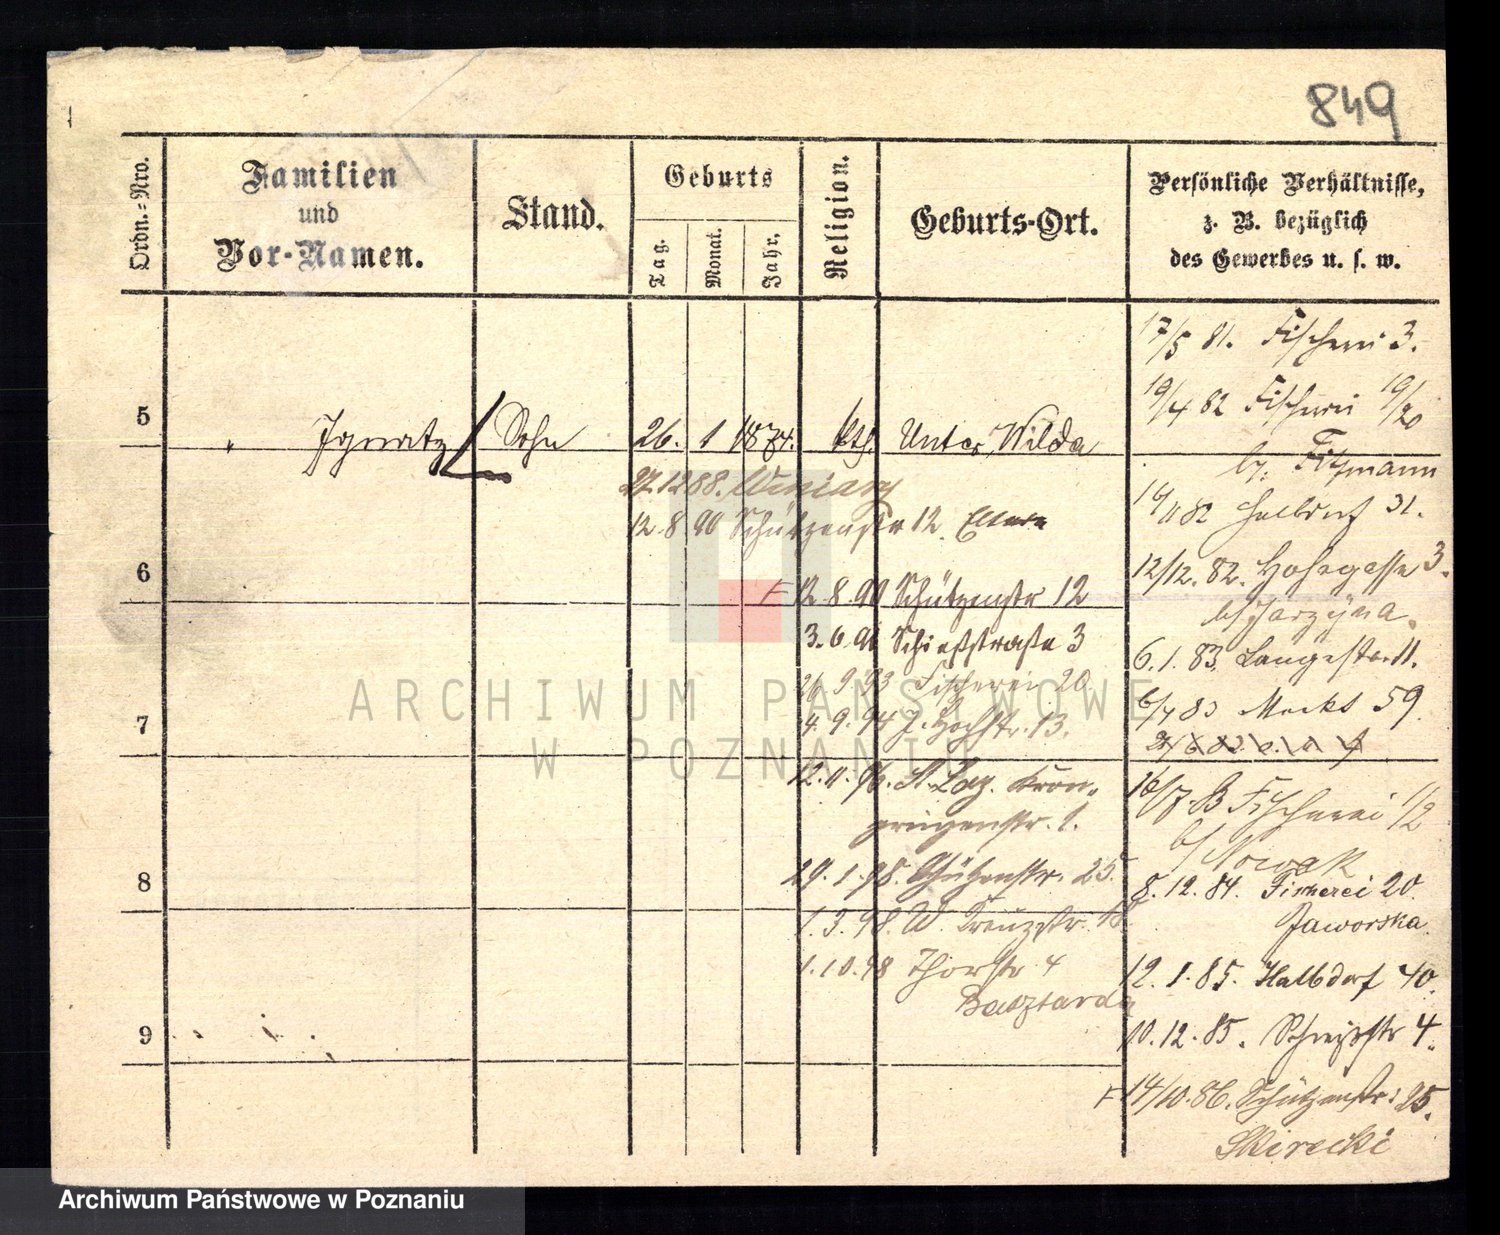 849
Ordn.-Nro.
Familien
und
Vor-Namen.
Stand.
Geburts
Tag.
Monat.
Jahr.
Religion.
Geburts-Ort.
Persönliche Verhältnisse,
z. B. bezüglich
des Gewerbes u. s. w.
17/5 81. Fischerei 3.
19/4 82 Fischerei 19/20
bz. Fitzmann
5 " Ignatz Sohn 26. 1 1874. kth. Unter Wilda
27.12 88. Winiary
12.8.90 Schützenstr 12. Eltern
82 Halbdorf 31.
12/12. 82. Hohegasse 3.
b/ Jarzyna.
6
12.8.90 Schützenstr 12
3.6.91 Schießstraße 3
6.1.83. Langestr. 11.
26 9 93 Fischerei 20.
83 Markt 59.
7
4.9.94 Hochstr. 13.
12.11.96. St. Laz. Kron-
prinzenstr. 1.
16/7. 83 Fischerei 1/2
b/ Nowak
8
29.1.98. Schützenstr. 25.
8.12.84. Fischerei 20.
Jaworska.
1.3.98. W. Kreuzstr.
1.10.98 Thorstr 4
Basztarda
12.1.85. Halbdorf 40.
9
10.12.85. Schießstr 4.
14/10.86. Schützenstr: 25.
Skirecki
ARCHIWUM PAŃSTWOWE
W POZNANIU
Archiwum Państwowe w Poznaniu